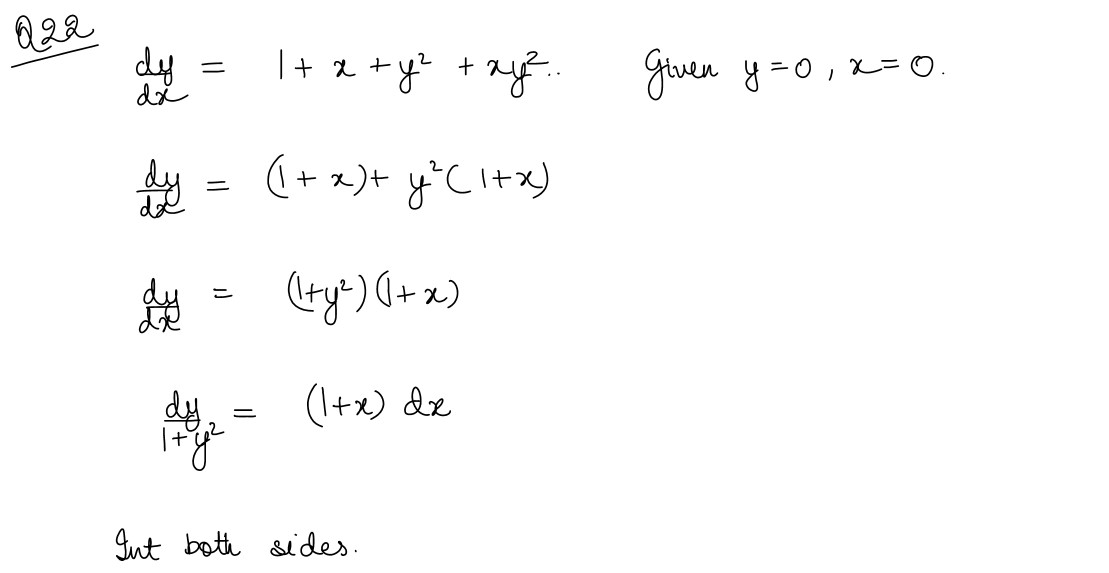 Q22
dy/dx = 1 + x + y² + xy².. Given y = 0 , x = 0.
dy/dx = (1 + x) + y² ( 1+x)
dy/dx = (1+y²) (1+ x)
dy/1+y² = (1+x) dx
Int both sides.